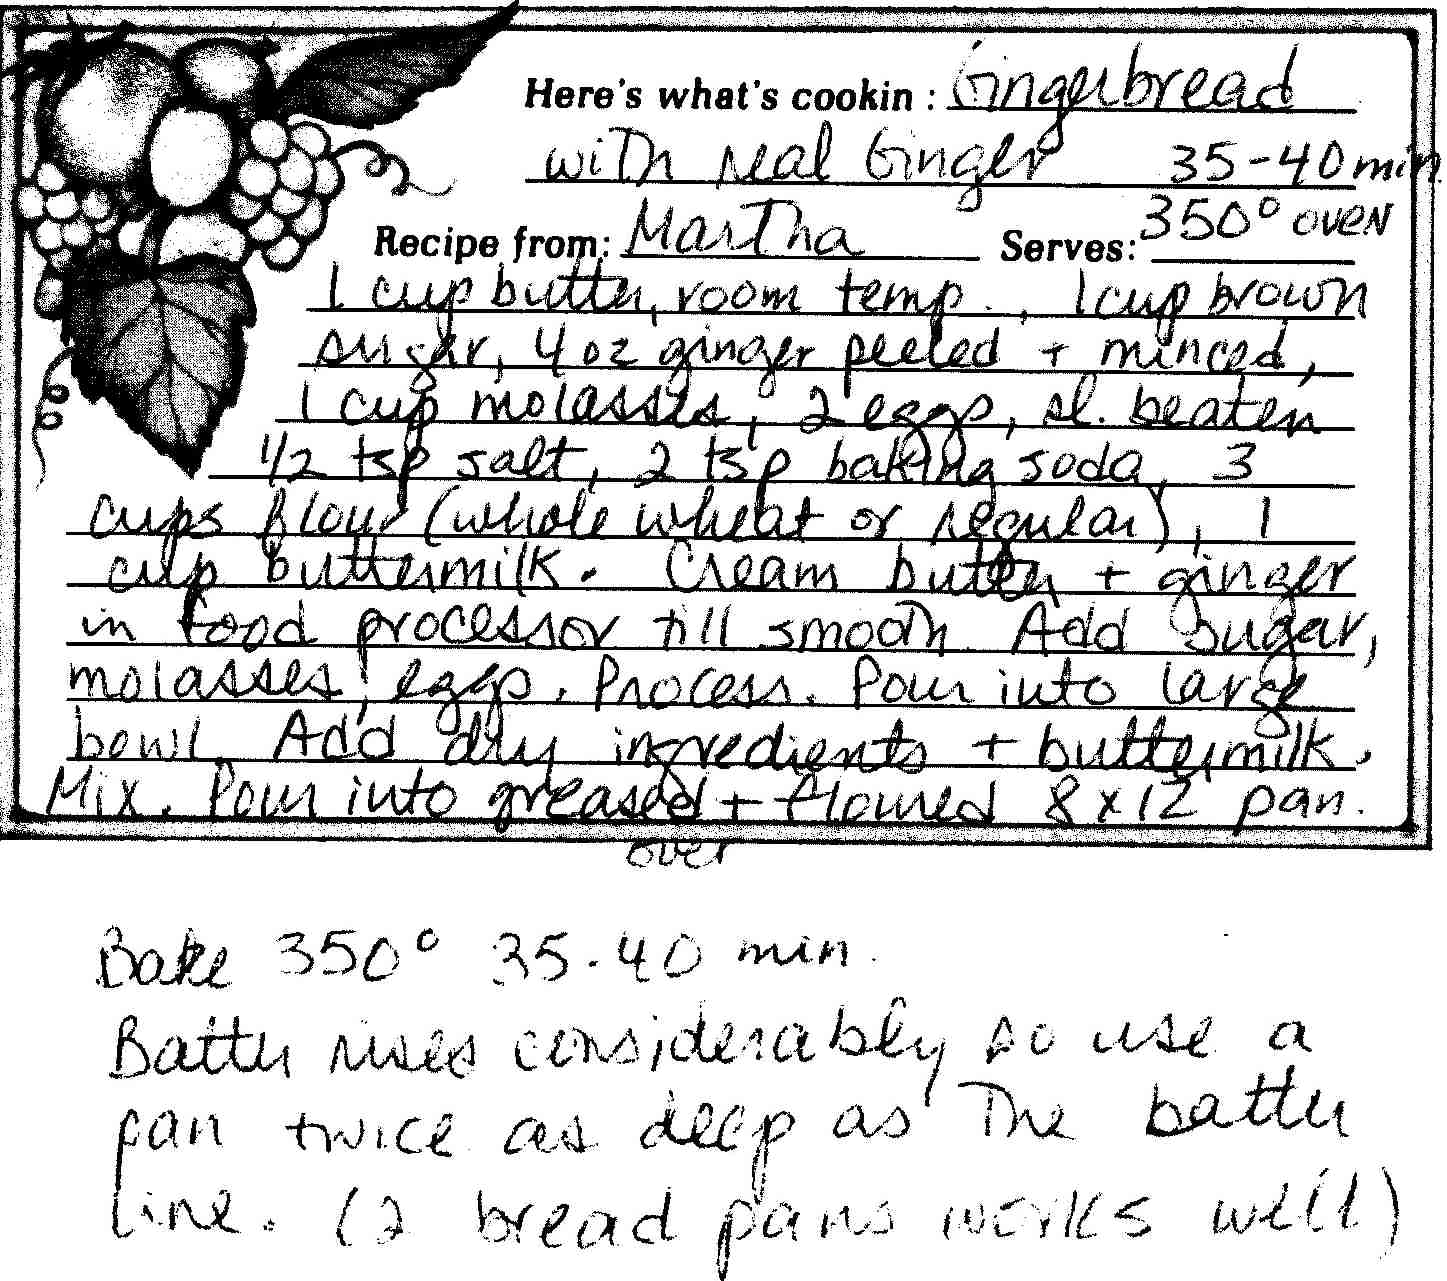 Here's what's cookin : Gingerbread
with real Ginger 35-40 min
350° oven
Recipe from: Martha Serves:
1 cup butter, room temp., 1 cup brown
sugar, 4 oz ginger peeled + minced,
1 cup molasses, 2 eggs, sl. beaten
1/2 tsp salt, 2 tsp baking soda, 3
cups flour (whole wheat or regular), 1
cup buttermilk. Cream butter + ginger
in food processor till smooth. Add sugar,
molasses, eggs. Process. Pour into large
bowl. Add dry ingredients + buttermilk.
Mix. Pour into greased + floured 8 x 12 pan.
over
Bake 350° 35-40 min.
Batter rises considerably so use a
pan twice as deep as the batter
line. (2 bread pans works well)